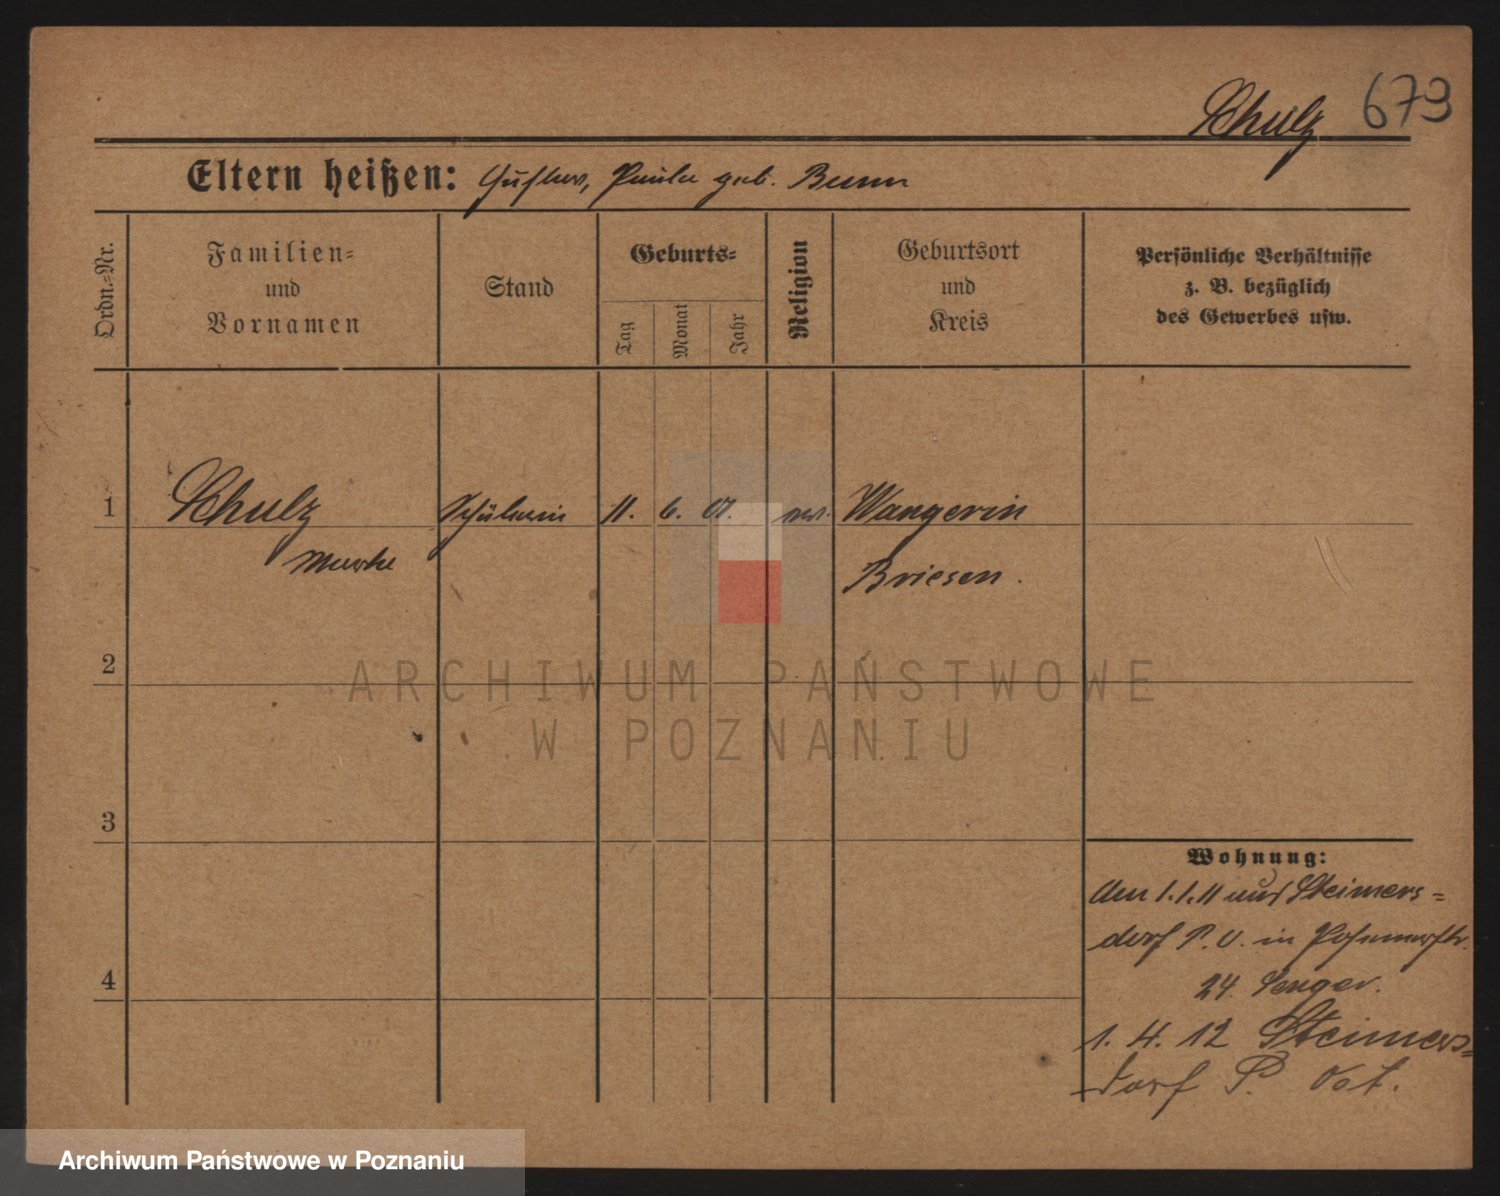 Schulz 679
Eltern heißen: Gustav, Paula geb. Bunn
Ordn.-Nr.
Familien-
und
Vornamen
Stand
Geburts-
Tag
Monat
Jahr
Religion
Geburtsort
und
Kreis
Persönliche Verhältnisse
z. B. bezüglich
des Gewerbes usw.
1 Schulz Schülerin 11. 6. 01. ev. Wangerin
Briesen.
2
3
4
Wohnung:
Am 1.1.11 aus Steimers-
dorf P. O. in
24.
1. 4. 12 Steimers-
dorf P. Ost.
ARCHIWUM PAŃSTWOWE
W POZNANIU
Archiwum Państwowe w Poznaniu